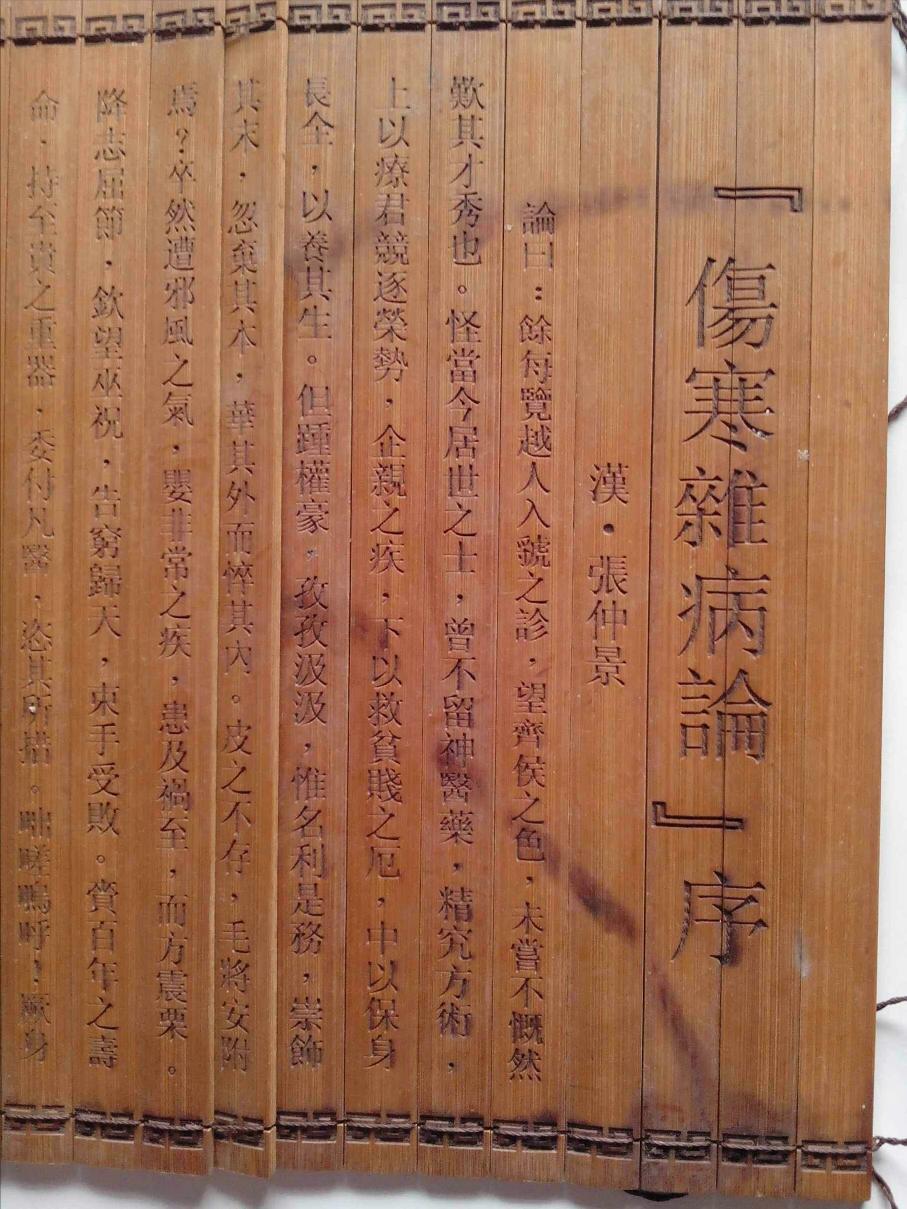 『傷寒雜病論』序
漢·張仲景
論曰：餘每覽越人入虢之診，望齊侯之色，未嘗不慨然
歎其才秀也。怪當今居世之士，曾不留神醫藥，精究方術，
上以療君競逐榮勢，企親之疾，下以救貧賤之厄，中以保身
長全，以養其生。但踵權豪，孜孜汲汲，惟名利是務，崇飾
其末，忽棄其本，華其外而悴其內。皮之不存，毛將安附
焉？卒然遭邪風之氣，嬰非常之疾，患及禍至，而方震栗。
降志屈節，欽望巫祝，告窮歸天，束手受敗。賚百年之壽
命，持至貴之重器，委付凡醫，恣其所措。咄嗟嗚呼！厥身